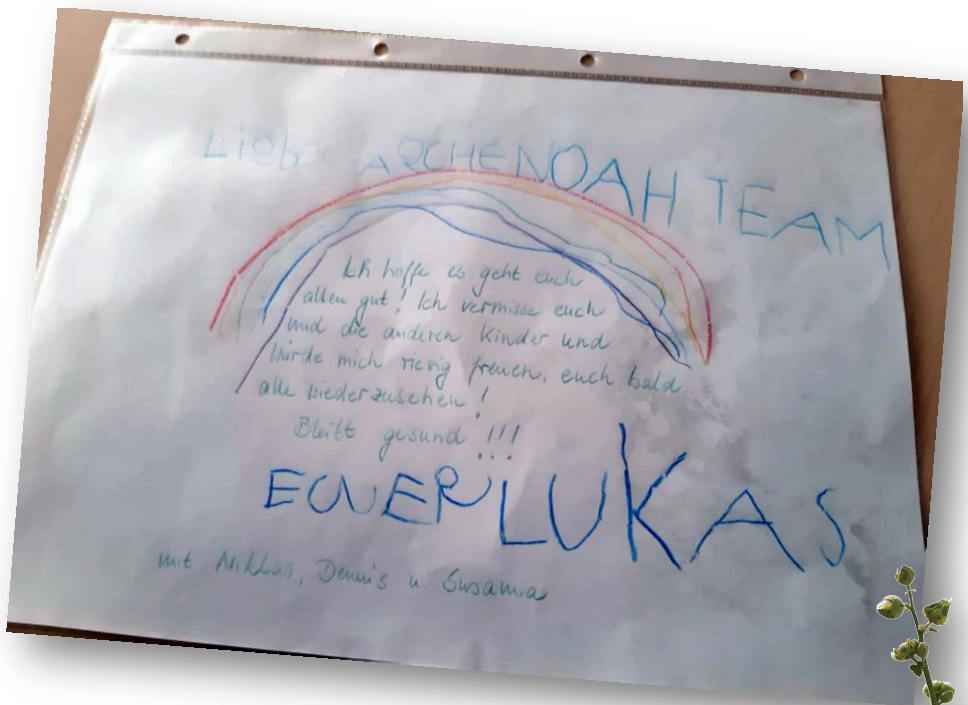 Lieb ARCHENOAH TEAM
Ich hoffe es geht euch
allen gut! Ich vermisse euch
und die anderen Kinder und
würde mich riesig freuen, euch bald
alle wiederzusehen!
Bleibt gesund!!!
EUER LUKAS
mit Niklas, Dennis u. Susanna